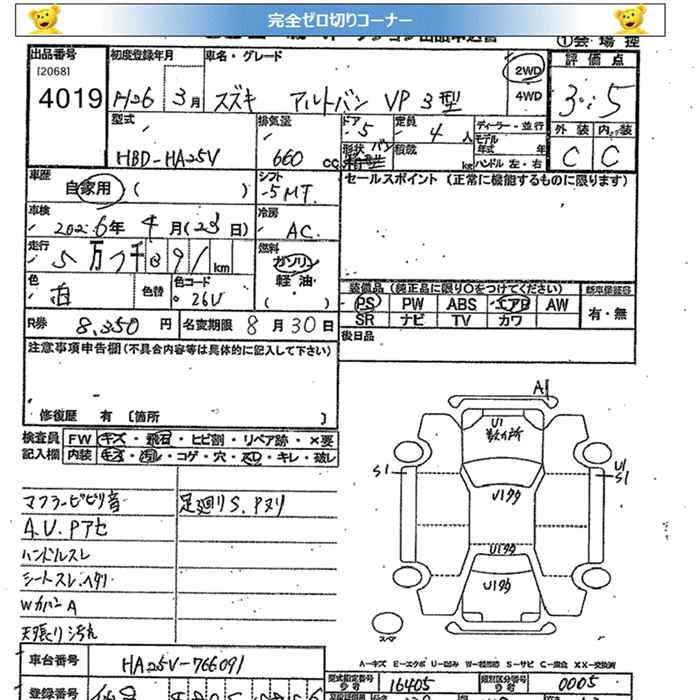 完全ゼロ切りコーナー
①会場控
出品番号 初度登録年月 車名・グレード 評価点
[2068]
4019 H26 3月 スズキ アルトバン VP 3型 2WD 4WD 3.5
型式 排気量 ドア 5 定員 4人 ディーラー・並行 外装 内装
HBD-HA25V 660cc 形状 バン 積載 kg モデル年式 年 C C
ハンドル 左・右
車歴 シフト セールスポイント (正常に機能するものに限ります)
自家用 ( ) 5MT.
車検 冷房
2026年 4月(23日) AC.
走行 燃料
5万 km ガソリン
軽油・
( )
色 色替 色コード 装備品 (純正品に限り○をつけてください) 新車保証書
白 26U PS PW ABS エアB AW 有・無
SR ナビ TV カワ
R券 8,350円 名変期限 8月30日 後日品
注意事項申告欄 (不具合内容等は具体的に記入して下さい)
修復歴 有 〔箇所 〕
検査員 FW キズ・飛石・ヒビ割・リペア跡・×要
記入欄 内装 キズ・汚レ・コゲ・穴・スレ・キレ・破レ
マフラービビリ音 足廻りS.Pヌリ
A.U.Pアセ
ハンドルスレ
シートスレ.ヘタリ
WカバンA
天張り汚れ
A1
U1
数カ所
S1
U1
S1
U1タタ
U1タタ
U1タタ
スペア
A-キズ E-エクボ U-凹み W-補修跡 S-サビ C-腐食 XX-交換済
車台番号 HA25V-766091
型式指定番号 16405 類別区分番号 0005
登録番号